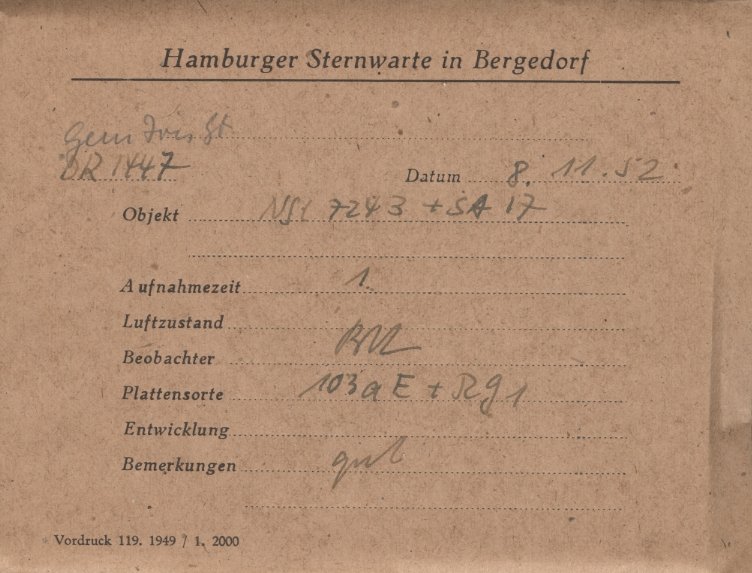 Hamburger Sternwarte in Bergedorf
DR 1447
Datum 8. 11. 52
Objekt 7243 + SA 17
Aufnahmezeit 1
Luftzustand
Beobachter
Plattensorte 103a E + Rg 1
Entwicklung
Bemerkungen gut
Vordruck 119. 1949 / 1. 2000